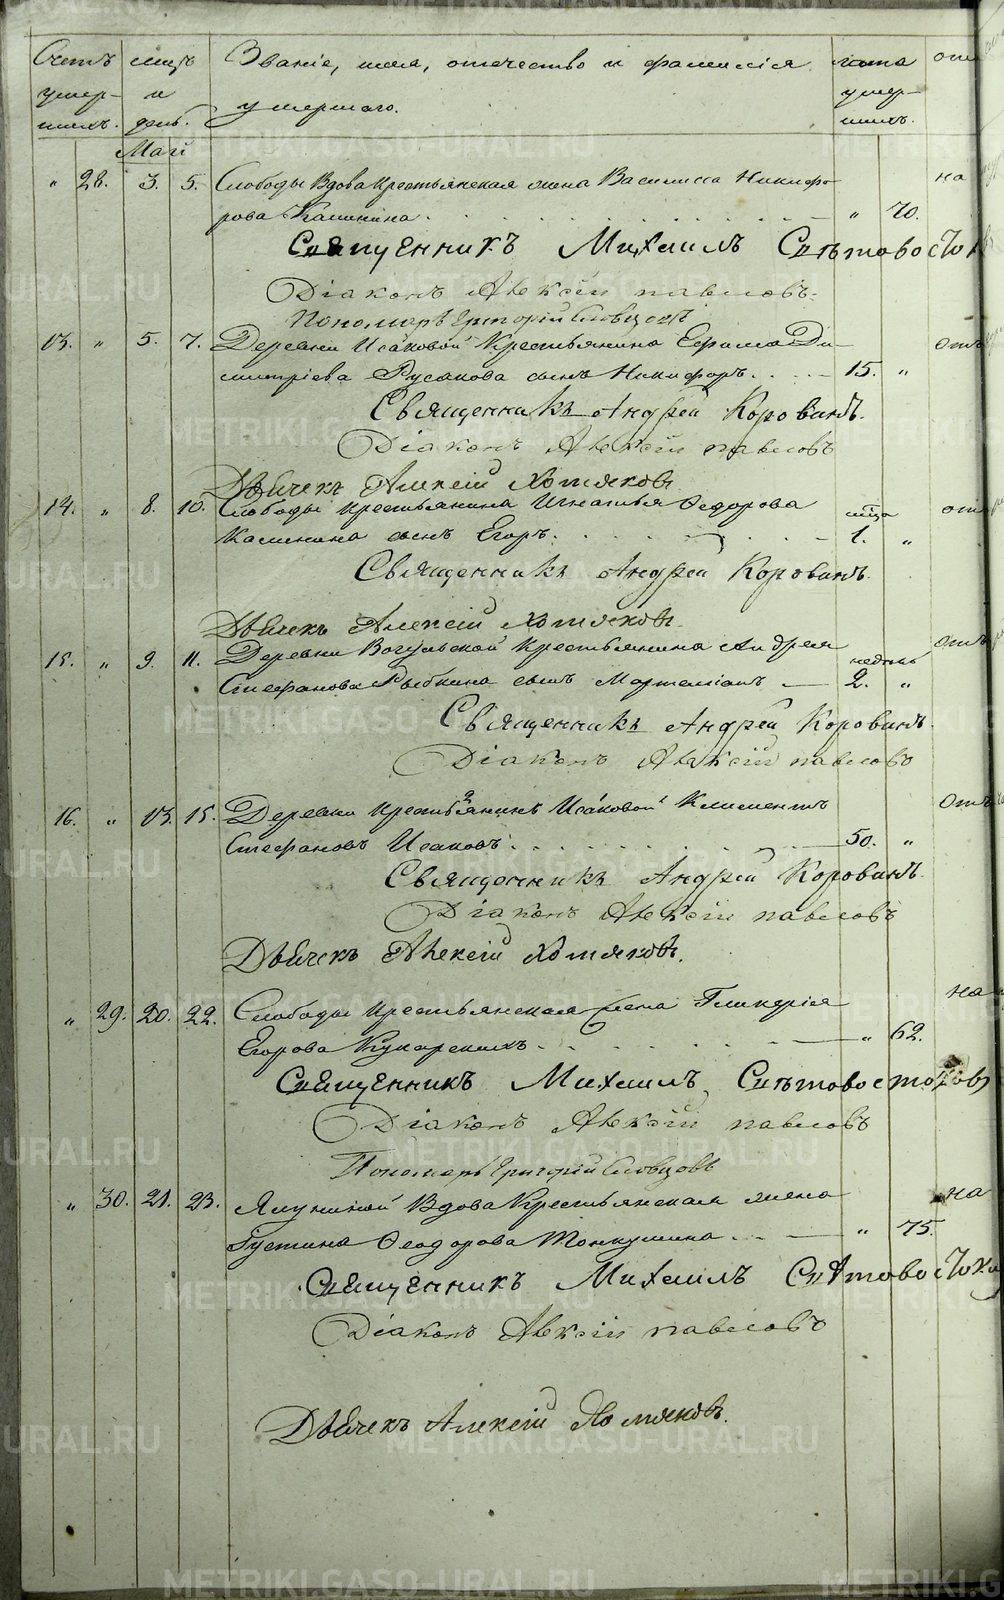 Счетъ умер- шихъ. мцъ и день. Званіе, имя, отчество и фамилія умершаго. лета умер- шихъ. отъ
Май
" 28. 3. 5. Слободы Вдова крестьянская жена Василисса Никифо- на
рова Калинина. " 70.
Священникъ Михаилъ Свѣтовостоков
Діаконъ Алексій Павловъ.
Пономарь Григорій Словцовъ
13. " 5. 7. Деревни Исаковой Крестьянина Ефима Ди- отъ
митріева Русакова сынъ Никифоръ. 15. "
Священникъ Андрей Коровинъ.
Діаконъ Алексій Павловъ
Дьячекъ Алексій Хомяковъ
14. " 8. 10. Слободы крестьянина Игнатья Ѳедорова мца от
Калинина сынъ Егоръ. 1. "
Священникъ Андрей Коровинъ.
Дьячекъ Алексій Хомяковъ.
15. " 9. 11. Деревни Вогульской крестьянина Андрея недѣль отъ
Стефанова Рыбкина сынъ 2. "
Священникъ Андрей Коровинъ.
Діаконъ Алексій Павловъ
16. " 13. 15. Деревни крестьянинъ Исаковой Климентъ отъ
Стефановъ Исаковъ. 50. "
Священникъ Андрей Коровинъ.
Діаконъ Алексій Павловъ
Дьячекъ Алексій Хомяковъ.
" 29. 20. 22. Слободы крестьянская жена Гликерія на
Егорова " 62.
Священникъ Михаилъ Свѣтовостоковъ
Діаконъ Алексій Павловъ
Пономарь Григорій Словцовъ
" 30. 21. 23. Ялуниной Вдова Крестьянская жена на
Густина Ѳеодорова Тонкушина " 75.
Священникъ Михаилъ Свѣтовостоков
Діаконъ Алексій Павловъ
Дьячекъ Алексій Хомяковъ.
METRIKI.GASO-URAL.RU